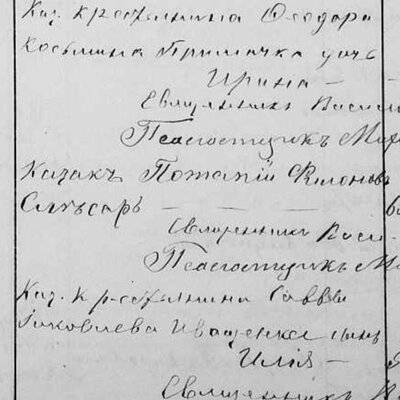 Каз. крестьянина Ѳеодора
Косьмина Примачка дочь
Ирина
Священникъ Васил
Псаломщикъ Ма
Казакъ Потапій Филоновъ
Слѣсарь
Священникъ Васи
Псаломщикъ М
Каз. крестьянина Саввы
Іаковлева Иващенка сынъ
Илія
Священникъ